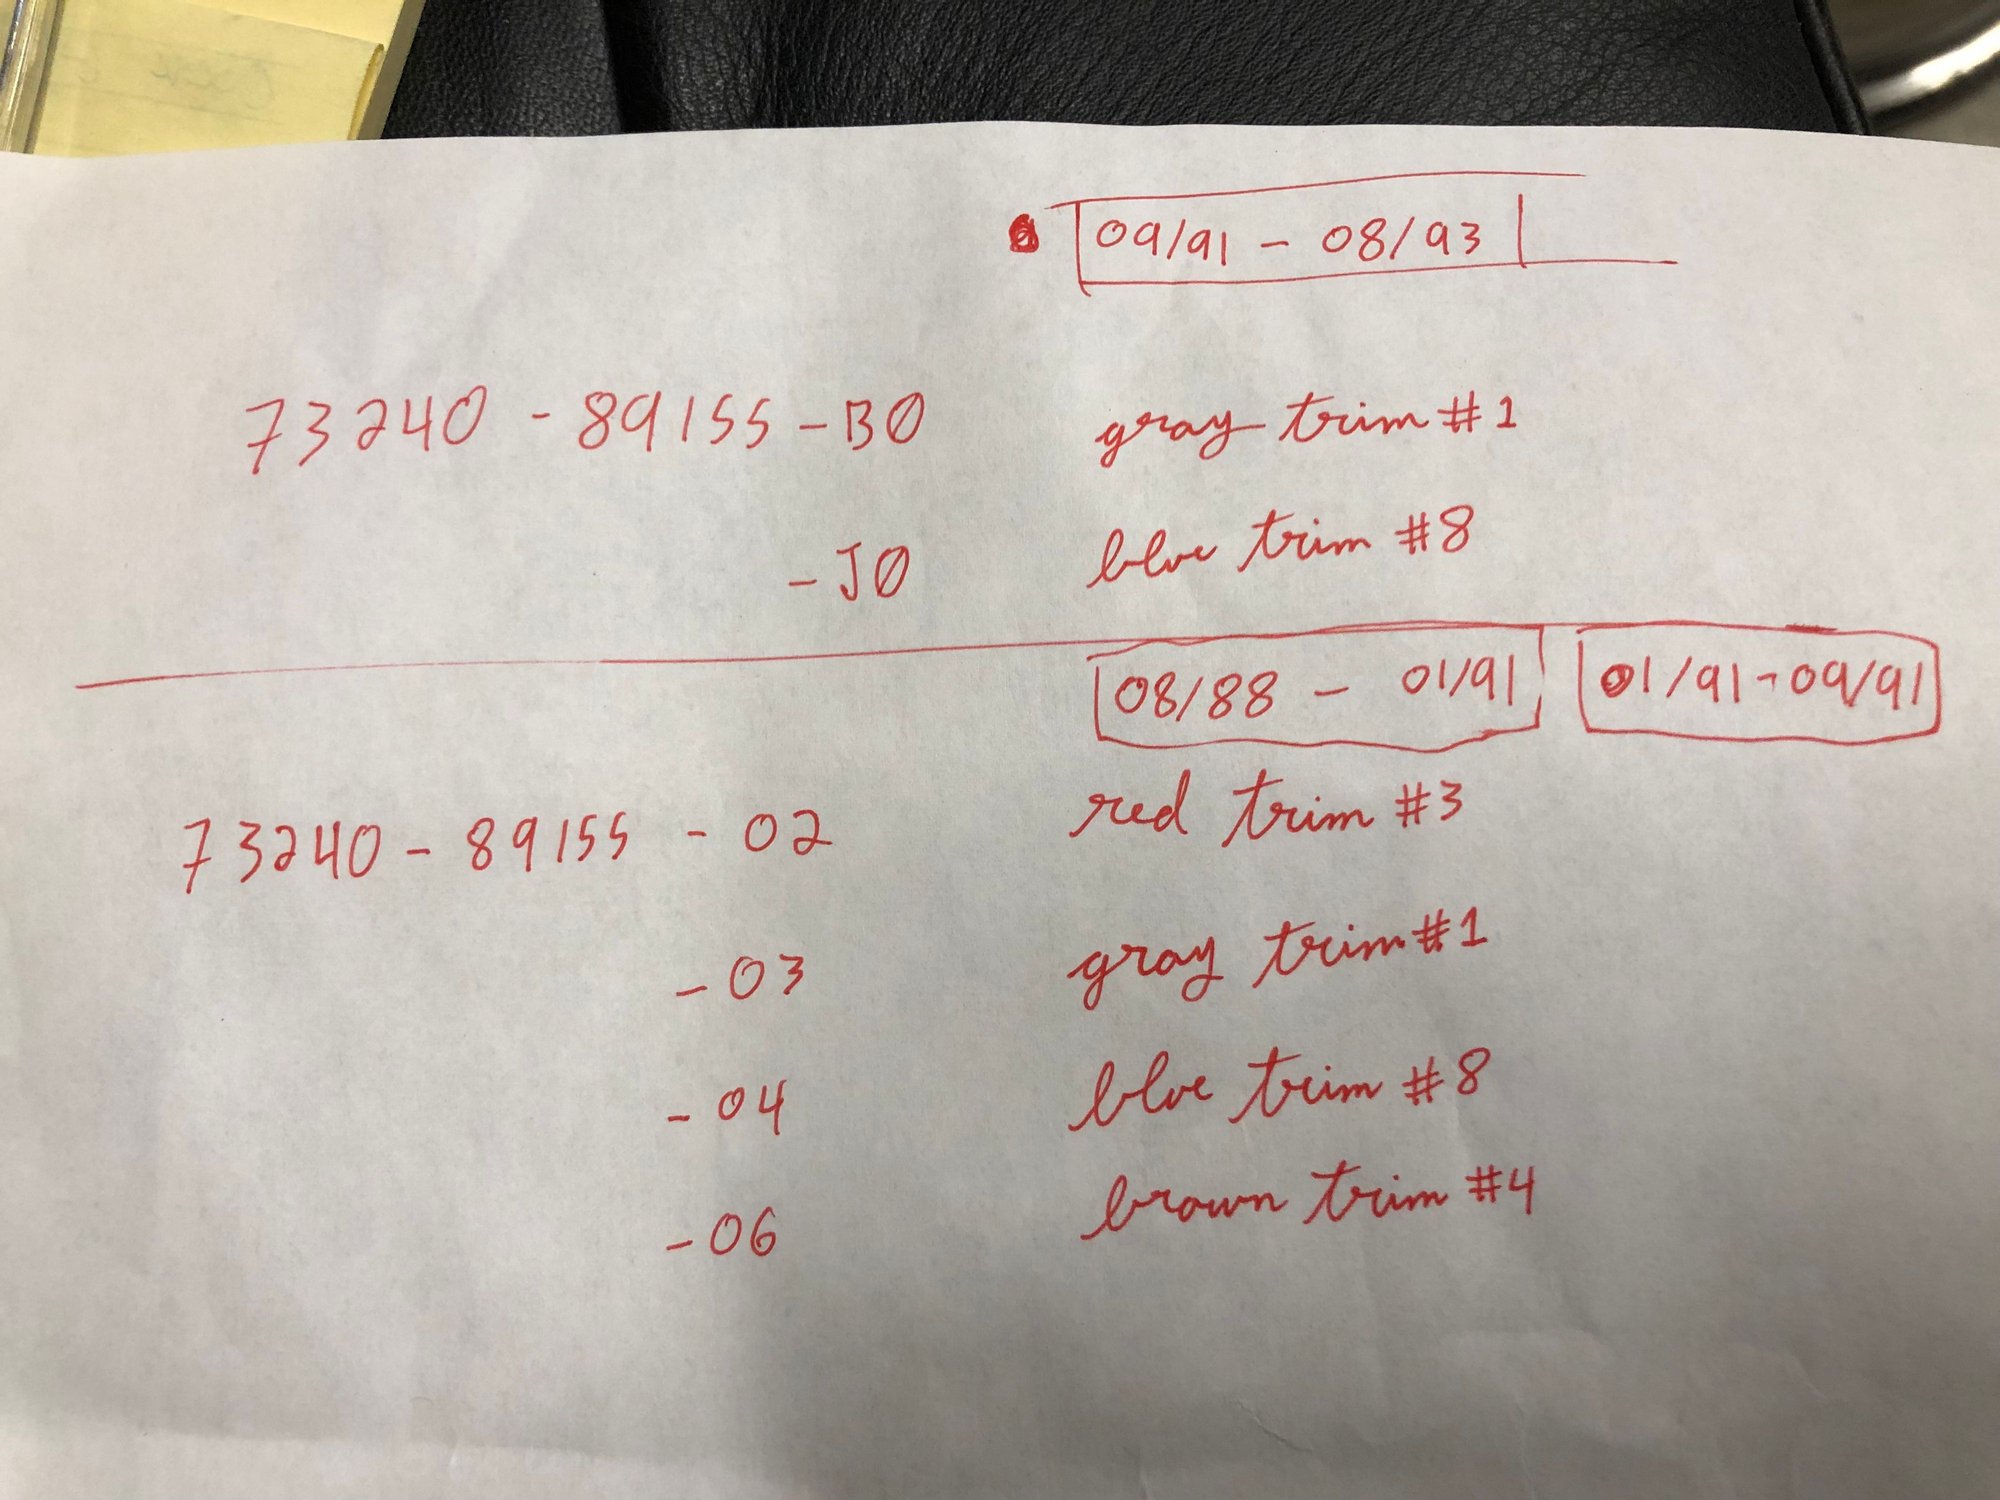 09/91 - 08/93
73240 - 89155 - B0 gray trim #1
- J0 blue trim #8
08/88 - 01/91 01/91 - 09/91
73240 - 89155 - 02 red trim #3
- 03 gray trim #1
- 04 blue trim #8
- 06 brown trim #4